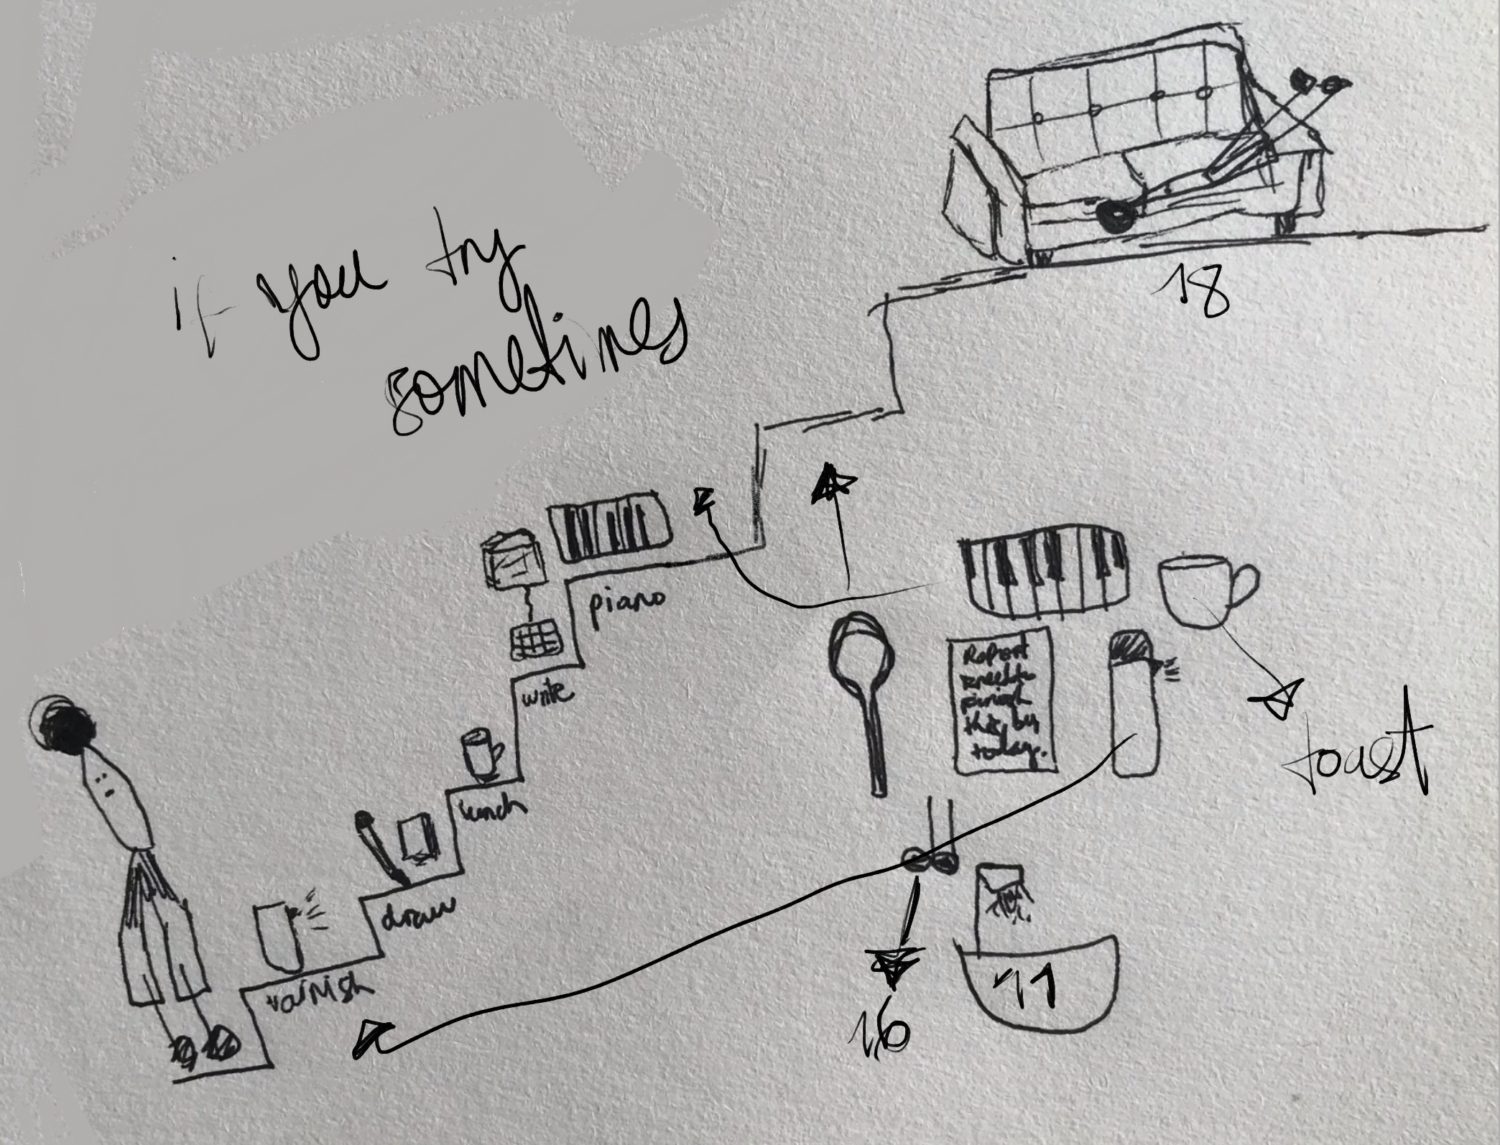 if you try
sometimes
18
piano
write
lunch
draw
varnish
Report
need to
finish
this by
today.
toast
16
11